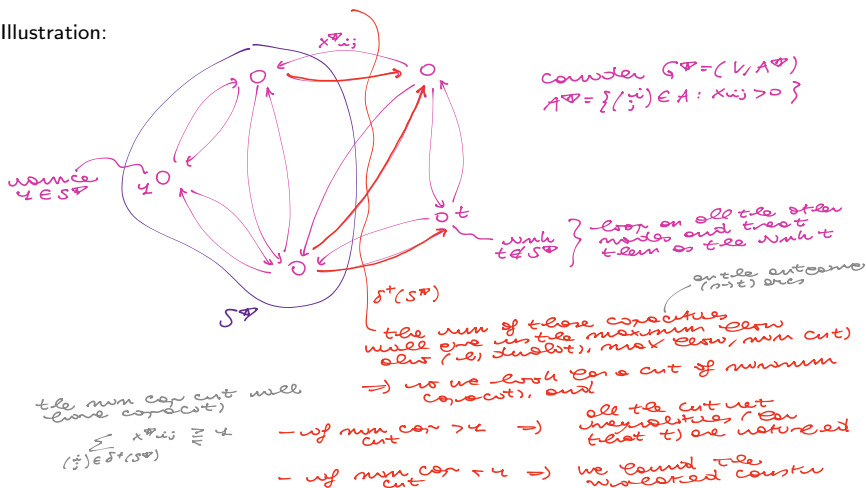 Illustration:
x*ij
consider G*=(V, A*)
A*={(i,j) ∈ A : xij>0}
source
1 ∈ S*
1
t
sink
t∉S*
loop on all the other
nodes and treat
them as the sink t
S*
δ+(S*)
on the outcome
(s→t) arcs
the sum of these capacities
will give us the maximum flow
also (by duality, max flow, min cut)
=> so we look for a cut of minimum
capacity, and
the min cap cut will
have capacity
∑ x*ij ⋛ 1
(i,j)∈δ+(S*)
- if min cap cut >1 => all the cut set
inequalities (for
that t) are satisfied
- if min cap cut <1 => we found the
violated constr